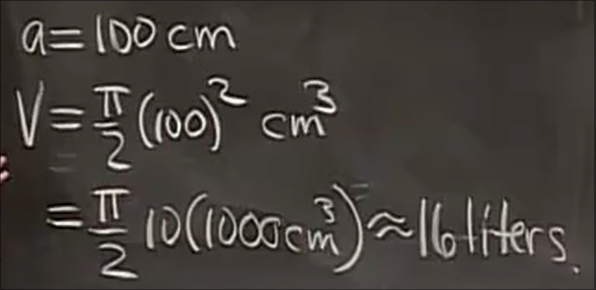 a=100 cm
V=π/2(100)² cm³
=π/2 10(1000cm³)≈16 liters.